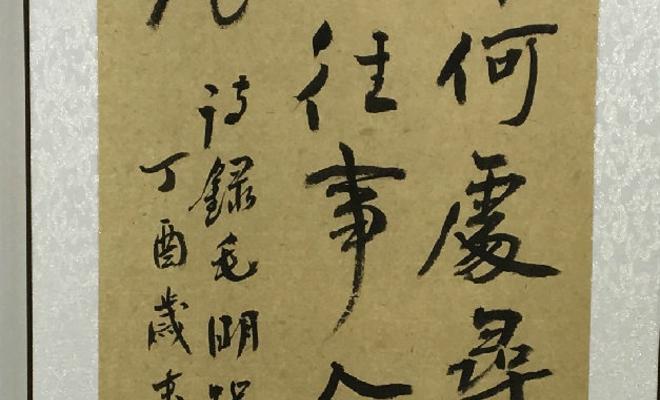 何處尋
往事
詩錄毛明
丁酉歲